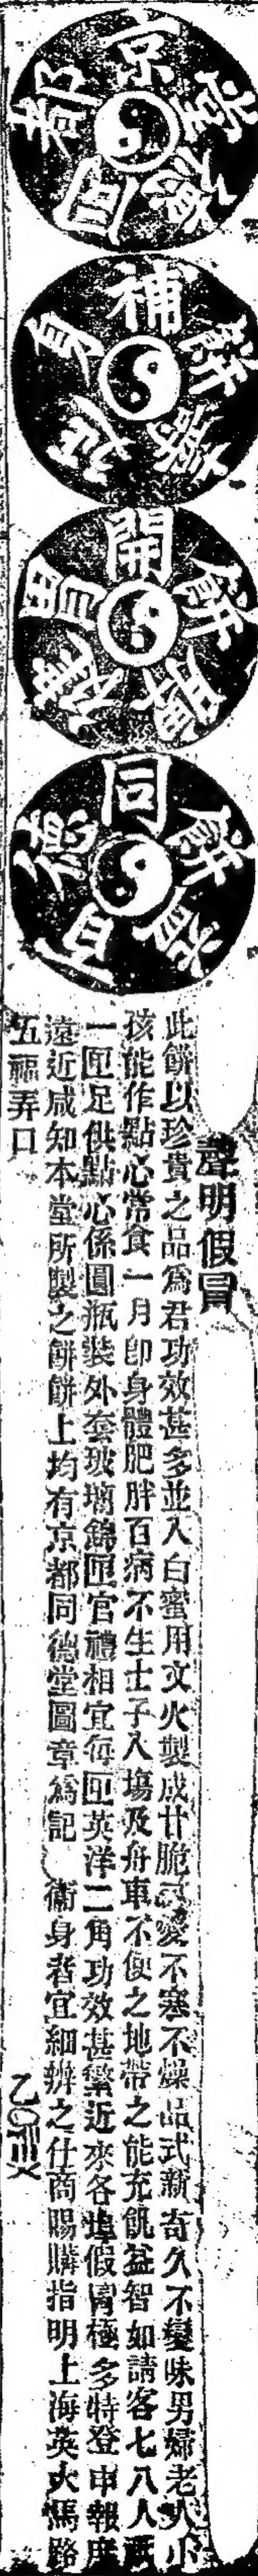 京都同德堂
補身延壽餅
開胃健脾餅
同德百餅
聲明假冒
此餅以珍貴之品爲君功效甚多並入白蜜用文火製成甘脆可愛不寒不燥品式新奇久不變味男婦老人小
孩能作點心常食一月即身體肥胖百病不生士子入塲及舟車不便之地帶之能充飢益智如請客七八人
一匣足供點心係圓瓶裝外套玻璃錦匣官禮相宜每匣英洋二角功效甚繁近來各埠假冒極多特登申報庶
遠近咸知本堂所製之餅餅上均有京都同德堂圖章爲記 衛身者宜細辨之仕商賜購指明上海英大馬路
五福弄口